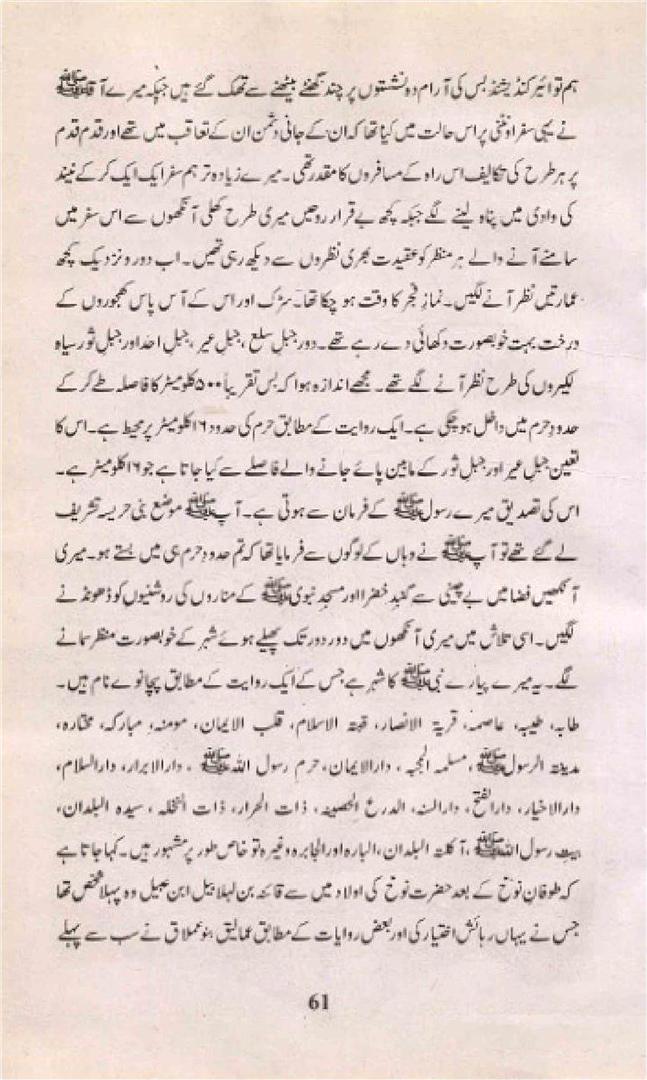 ہم تو ائیرکنڈیشنڈ بس کی آرام دہ نشستوں پر چند گھنٹے بیٹھنے سے تھک گئے ہیں جبکہ میرے آقا ﷺ
نے یہی سفر اونٹنی پر اس حالت میں کیا تھا کہ ان کے جانی دشمن ان کے تعاقب میں تھے اور قدم قدم
پر ہر طرح کی تکالیف اس راہ کے مسافروں کا مقدر تھی۔ میرے زیادہ تر ہم سفر ایک ایک کر کے نیند
کی وادی میں پناہ لینے لگے جبکہ کچھ بے قرار روحیں میری طرح کھلی آنکھوں سے اس سفر میں
سامنے آنے والے ہر منظر کو عقیدت بھری نظروں سے دیکھ رہی تھیں۔ اب دور و نزدیک کچھ
عمارتیں نظر آنے لگیں۔ نماز فجر کا وقت ہو چکا تھا۔ سڑک اور اس کے آس پاس کھجوروں کے
درخت بہت خوبصورت دکھائی دے رہے تھے۔ دور جبل سلع، جبل عیر، جبل احد اور جبل ثور سیاہ
لکیروں کی طرح نظر آنے لگے تھے۔ مجھے اندازہ ہوا کہ بس تقریباً ۵۰۰ کلومیٹر کا فاصلہ طے کر کے
حدود حرم میں داخل ہو چکی ہے۔ ایک روایت کے مطابق حرم کی حدود ۱۶ کلومیٹر پر محیط ہے۔ اس کا
تعین جبل عیر اور جبل ثور کے مابین پائے جانے والے فاصلے سے کیا جاتا ہے جو ۱۶ کلومیٹر ہے۔
اس کی تصدیق میرے رسول ﷺ کے فرمان سے ہوتی ہے۔ آپ ﷺ موضع بنی حریسہ تشریف
لے گئے تھے تو آپ ﷺ نے وہاں کے لوگوں سے فرمایا تھا کہ تم حدود حرم ہی میں بستے ہو۔ میری
آنکھیں فضا میں بے چینی سے گنبد خضرا اور مسجد نبوی ﷺ کے مناروں کی روشنیوں کو ڈھونڈنے
لگیں۔ اسی تلاش میں میری آنکھوں میں دور دور تک پھیلے ہوئے شہر کے خوبصورت منظر سمانے
لگے۔ یہ میرے پیارے نبی ﷺ کا شہر ہے جس کے ایک روایت کے مطابق پچانوے نام ہیں۔
طابہ، طیبہ، عاصمہ، قریۃ الانصار، قبتہ الاسلام، قلب الایمان، مومنہ، مبارکہ، مختارہ،
مدینتہ الرسول ﷺ، مسلمہ المحبہ، دارالایمان، حرم رسول اللہ ﷺ، دارالابرار، دارالسلام،
دارالاخیار، دارالفتح، دارالسنہ، الدرع الحصینہ، ذات الحرار، ذات النخلہ، سیدہ البلدان،
بیت رسول اللہ ﷺ، آکلتہ البلدان، البارہ اور الجابرہ وغیرہ تو خاص طور پر مشہور ہیں۔ کہا جاتا ہے
کہ طوفان نوحؑ کے بعد حضرت نوحؑ کی اولاد میں سے قائنہ بن لہلابیل ابن عبیل وہ پہلا شخص تھا
جس نے یہاں رہائش اختیار کی اور بعض روایات کے مطابق عمالیق بنو عملاق نے سب سے پہلے
61